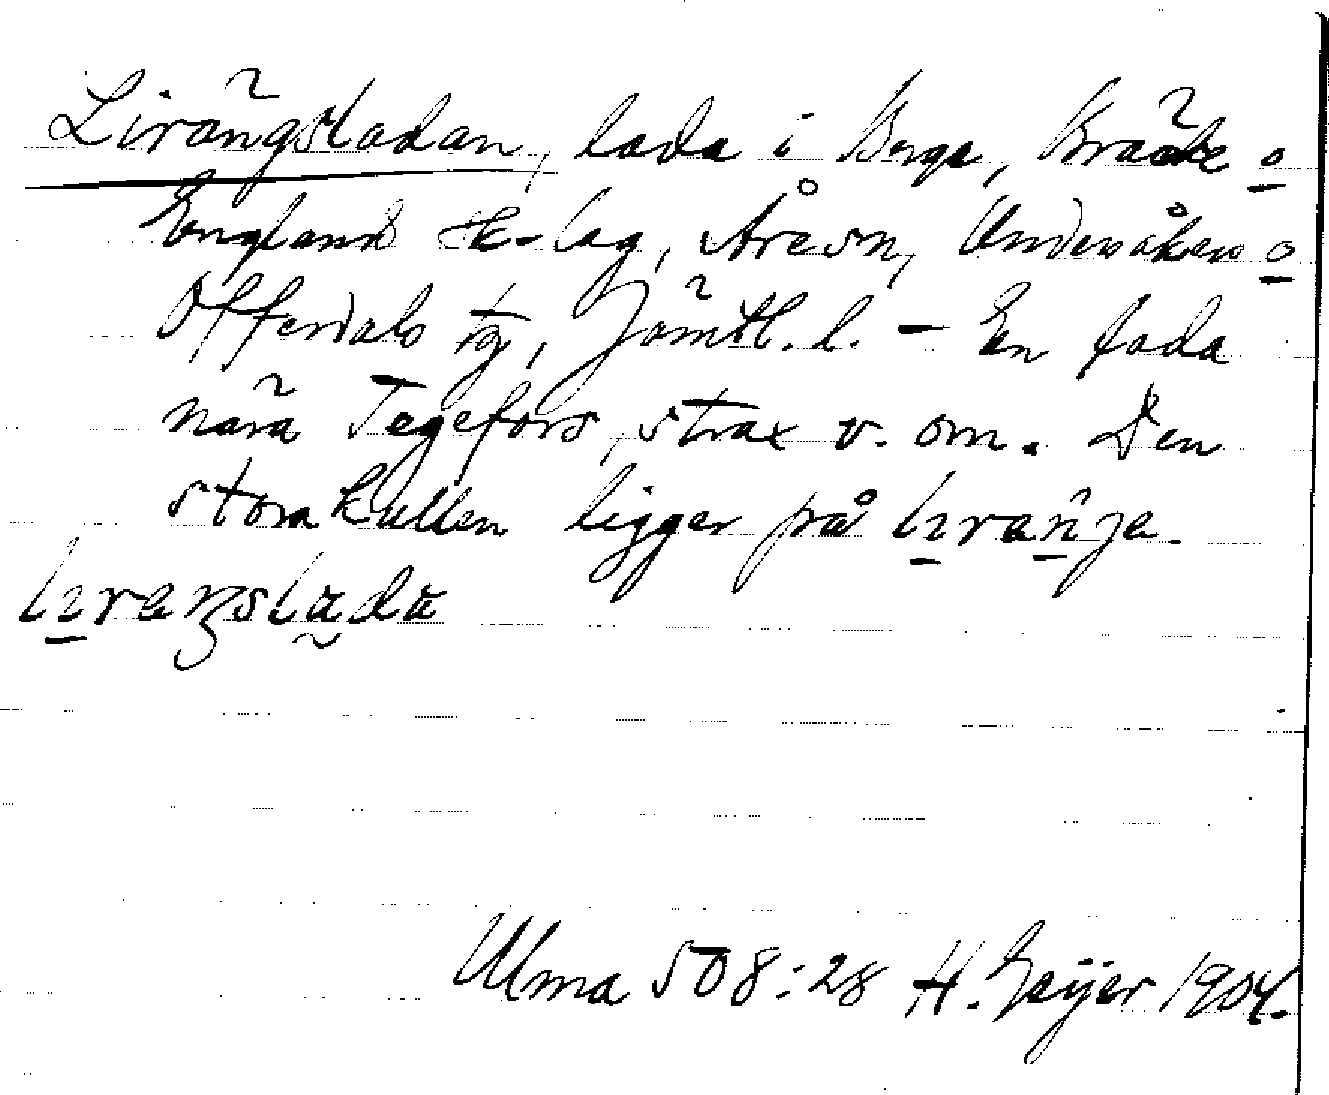 Lirängsladan, lada i Berge, Bräcke o
Englands sk-lag, Åresn, Undersåkers o
Offerdals tg, Jämtl. l. – En lada
nära Tegefors, strax v. om. Den
stora kullen ligger på lıraŋ̂ja.
lıraŋslada
Ulma 508:28 H. Geijer 1904.